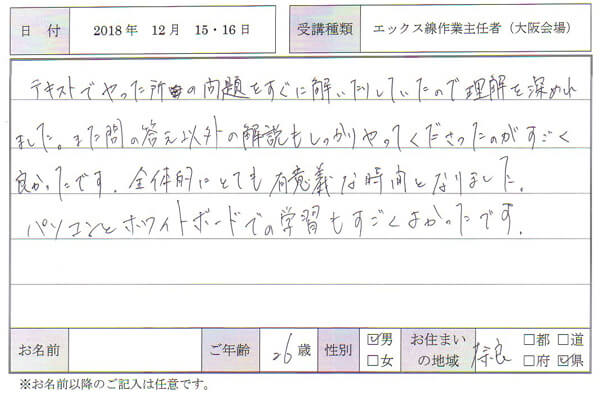 日付 2018年 12月 15・16日 受講種類 エックス線作業主任者（大阪会場）
テキストでやった所の問題をすぐに解いたりしていたので理解を深めれ
ました。また問の答え以外の解説もしっかりやってくださったのがすごく
良かったです。全体的にとても有意義な時間となりました。
パソコンとホワイトボードでの学習もすごくよかったです。
お名前 ご年齢 26歳 性別 ☑男 □女 お住まいの地域 奈良 □都 □道 □府 ☑県
※お名前以降のご記入は任意です。